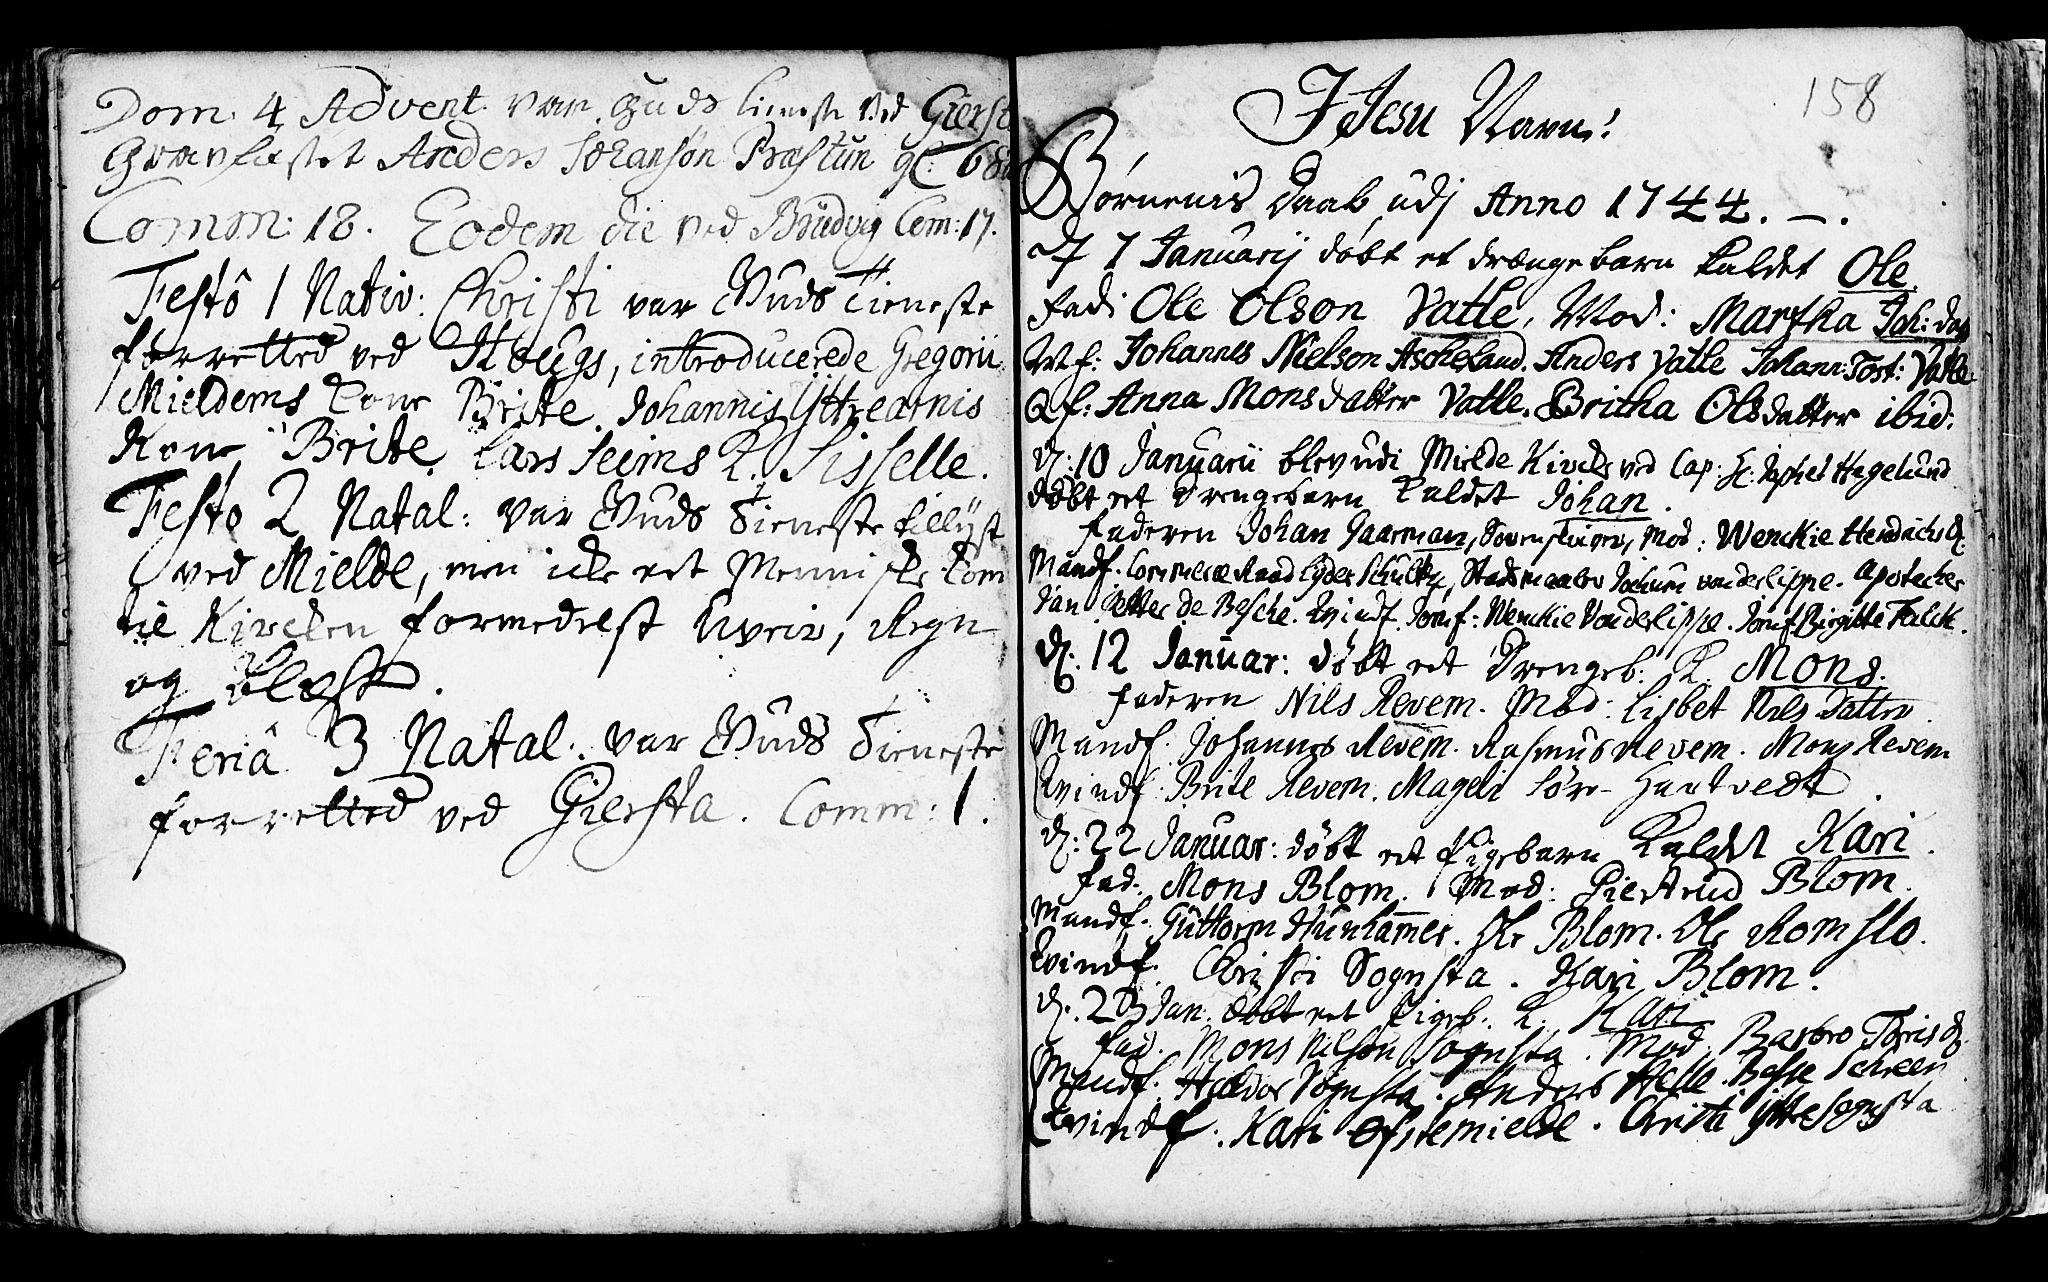 Dom. 4 Advent. var Guds tieneste ved Giersta
Gravfæstet Anders Johansøn Præstun gl: 68
Comm: 18. Eodem die ved Brudvig Com: 17.
Festô 1 Nativ: Christi var Guds Tieneste
forretted ved Hougs, introducerede Gregorii
Mieldems Kone Brite. Johannis
Kone Brite. Lars Seims K. Sisselle.
Festo 2 Natal: var Guds Tieneste tillyst
ved Mielde, men icke eet Menniske kom
til Kircken formedelst Uveir, Regn
og Blæst.
Feriâ 3 Natal: var Guds Tieneste
forretted ved Giersta. Comm: 1.
158
I Jesu Navn!
Børnenis Daab udj Anno 1744. —.
D 7 Januarij døbt et drængebarn kaldet Ole.
Fad: Ole Olson Vatle, Mod: Martha Joh: dat
Mf: Johannes Nielson Ascheland. Anders Vatle Johann: Tost: Vatle
Qf: Anna Monsdatter Vatle. Britha Olsdatter ibid:
d: 10 Januarii blev udi Mielde Kircke ved Cap: H: Japhet Hagelund
døbt eet Drengebarn kaldet Johan.
Faderen Johan Gaarman, Sorenskriver, Mod: Wenckie
Mandf. Commerce Raad Lyder Schultz, Stadsmaaler Jochum vonderlippe. Apotecker
Jan Petter de Besche. Kvindf. Jomf: Wenckie Vonderlippe. Jomf Birgitte Falck.
d: 12 Januar: døbt eet Drengeb. K. Mons.
Faderen Nils Revem. Mod: Lisbet Nils Datter.
Mandf. Johannes Revem. Rasmus Revem. Mons Revem
Kvindf. Brite Revem. Mageli Søre-Hantvedt.
d: 22 Januar: døbt eet Pigebarn Kaldet Kari.
Fad. Mons Blom. Mod: Giertrud Blom.
Mandf. Guttorm Hunhamer. Ole Blom. Ole Romslo.
Kvindf. Christi Sognsta. Kari Blom.
d: 23 Jan. døbt eet Pigeb. K. Kari
Fad. Mons Nilsøn Sognsta. Mod. Barbro
Mandf. Haldor Sognsta. Anders Helle.
Kvindf. Kari Østremielde. Christi Ytte Sognsta